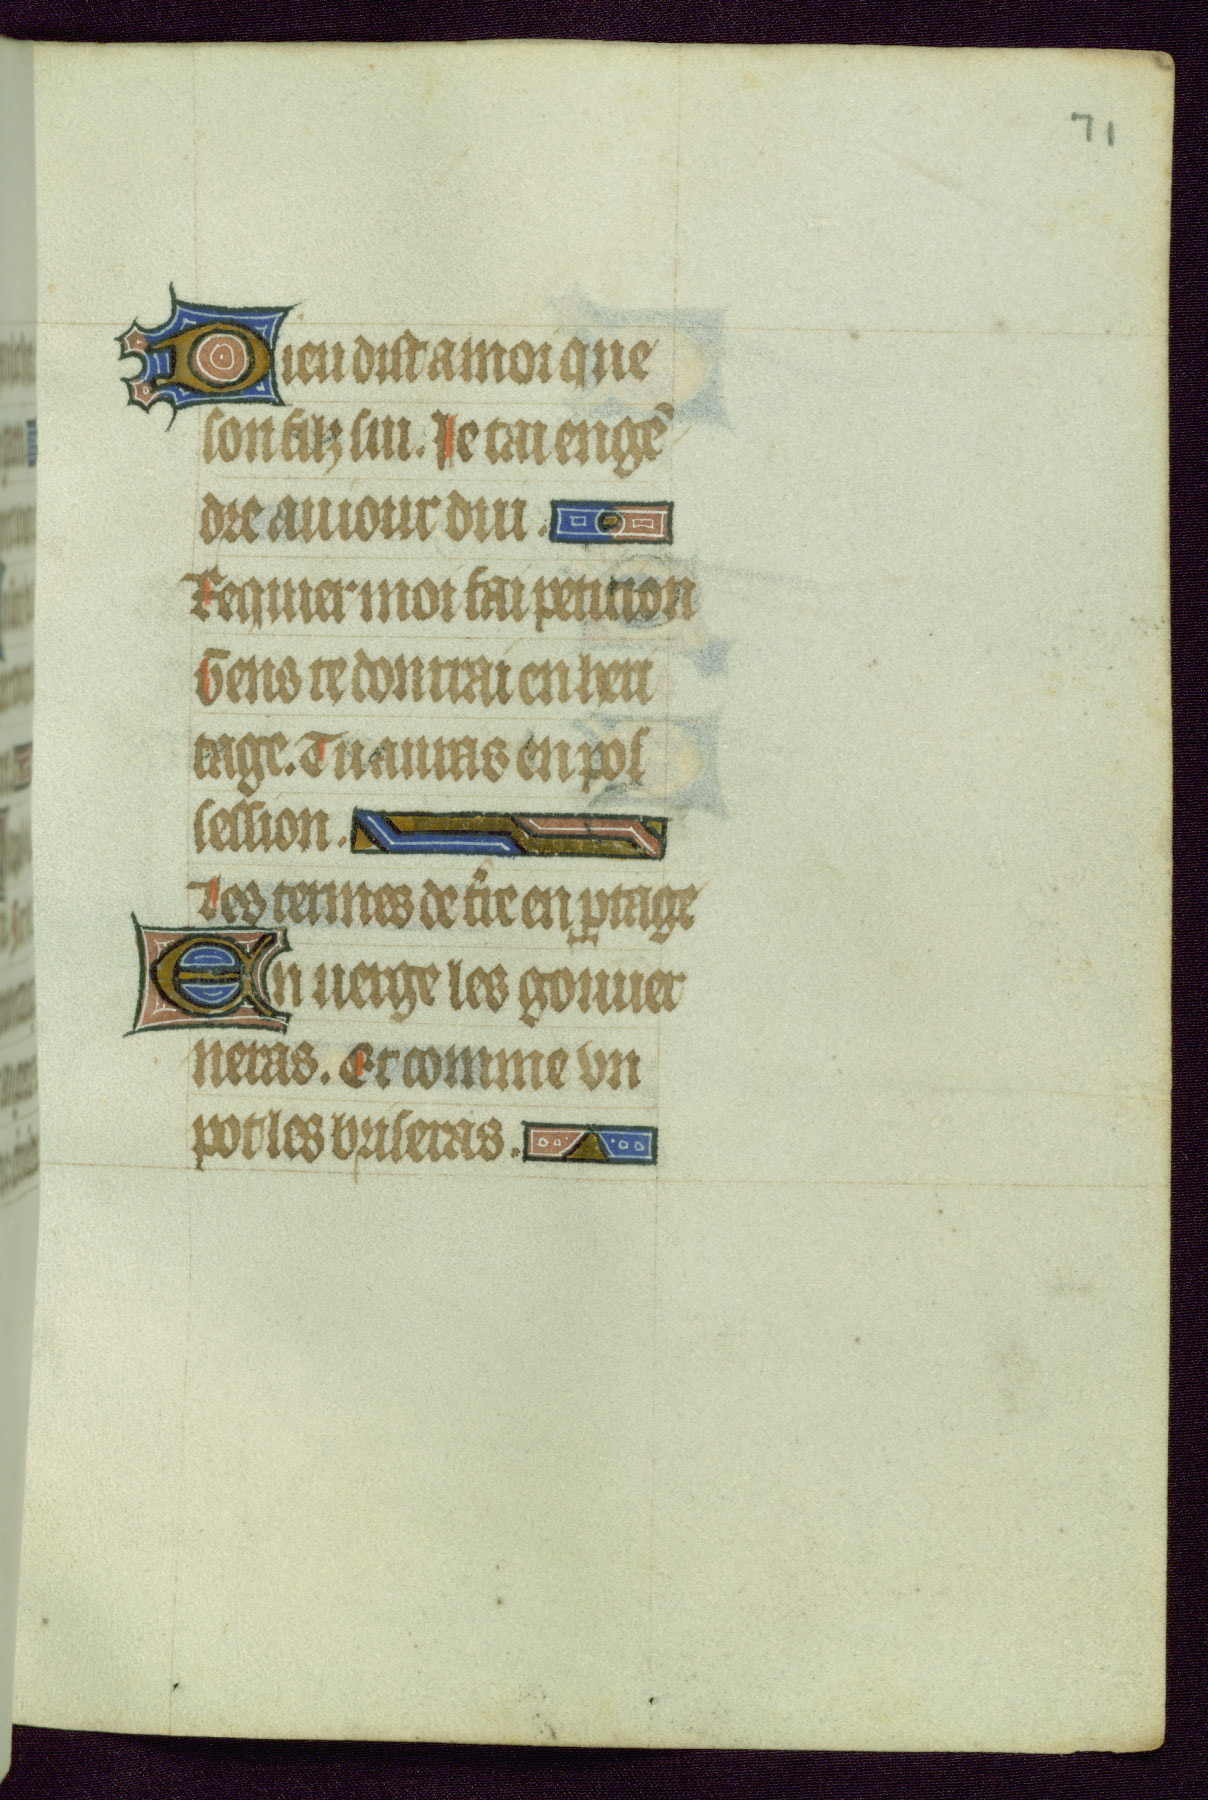 71
Dieu dist a moi que
son filz sui. Je tai engē
dre auiour dui.
Requier moi fai peticion
Gens te donrrai en heri
tage. Tu auras en pos
session.
Les termes de t̄re en ꝑtage
En uerge les gouuer
neras. Et comme vn
pot les briseras.